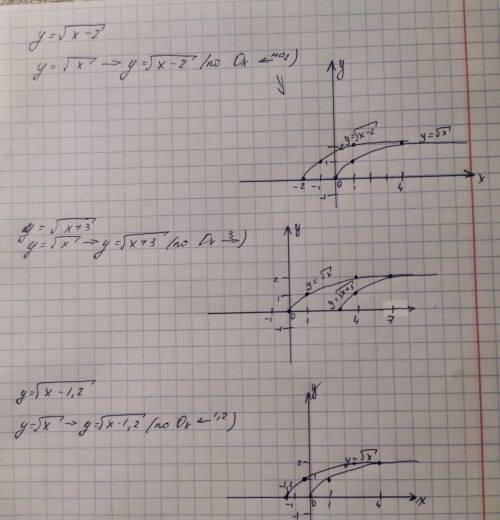 y = √x-2
y = √x → y = √x-2 (по Ox ← на 2)
y
y=√x-2
y=√x
1
-2 -1 0 1 4 x
-1
y = √x+3
y = √x → y = √x+3 (по Ox 3→)
y
2
y=√x
1
y=√x+3
-1 0 1 4 7
-1
y = √x-1,2
y = √x → y = √x-1,2 (по Ox ← 1,2)
y
2
y=√x
-1,2 1
-1 0 1 4 x
-1